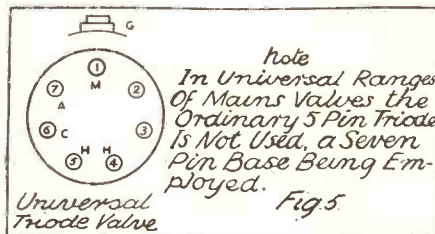 G
1
M
7
2
A
6
C
3
H H
5
4
Universal
Triode Valve
Note
In Universal Ranges
Of Mains Valves the
Ordinary 5 Pin Triode
Is Not Used, a Seven
Pin Base Being Em-
ployed.
Fig.5